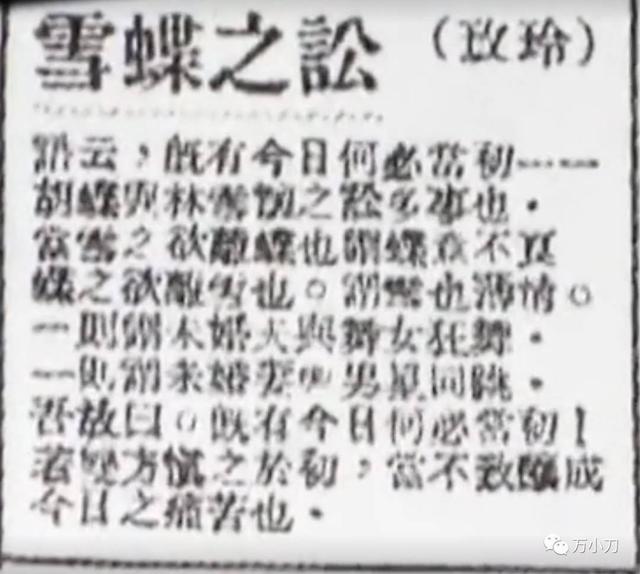 雪蝶之訟 （玫玲）
語云，既有今日何必當初——
胡蝶與林雪懷之訟多事也。
當雪之欲離蝶也謂蝶意不真
蝶之欲離雪也。謂雪也薄情。
一則謂未婚夫與舞女狂舞。
一則謂未婚妻與男星同跳。
吾故曰。既有今日何必當初！
若雙方慎之於初，當不致釀成
今日之痛苦也。
万小刀